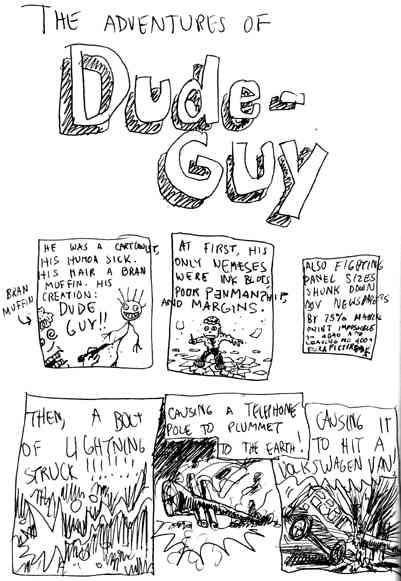 THE ADVENTURES OF
Dude-
GUY
HE WAS A CARTOONIST,
HIS HUMOR SICK.
HIS HAIR A BRAN
MUFFIN. HIS
CREATION:
DUDE
GUY!!
BRAN
MUFFIN
AT FIRST, HIS
ONLY NEMESES
WERE INK BLOTS,
POOR PENMANSHIP,
AND MARGINS.
ALSO FIGHTING
PANEL SIZES
SHUNK DOWN
BY NEWSPAPERS
BY 75% MAKING
PRINT IMPOSSIBLE
TO READ AND
LEAVING NO ROOM
FOR A PICTURE
THEN, A BOLT
OF LIGHTNING
STRUCK !!!!!!
CAUSING A TELEPHONE
POLE TO PLUMMET
TO THE EARTH!
CAUSING IT
TO HIT A
VOLKSWAGEN VAN!